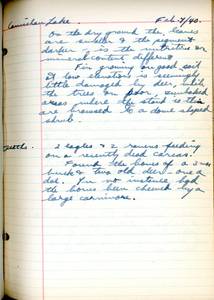 Cowichan Lake Feb. 7/40.
On the dry ground the leaves
are smaller & the pigment
darker, is the nutrition or
mineral content different
Fir growing on good soil
at low elevations is seemingly
little damaged by deer, while
the trees on poor, sunbaked
areas where the stand is thin
are browsed to a dome shaped
shrub.
Deaths. 2 eagles & 2 ravens feeding
on a recently dead carcas.
Found the bones of a 2 yr
buck & two old deer - one a
doe. In no instance had
the bones been chewed by a
large carnivore.